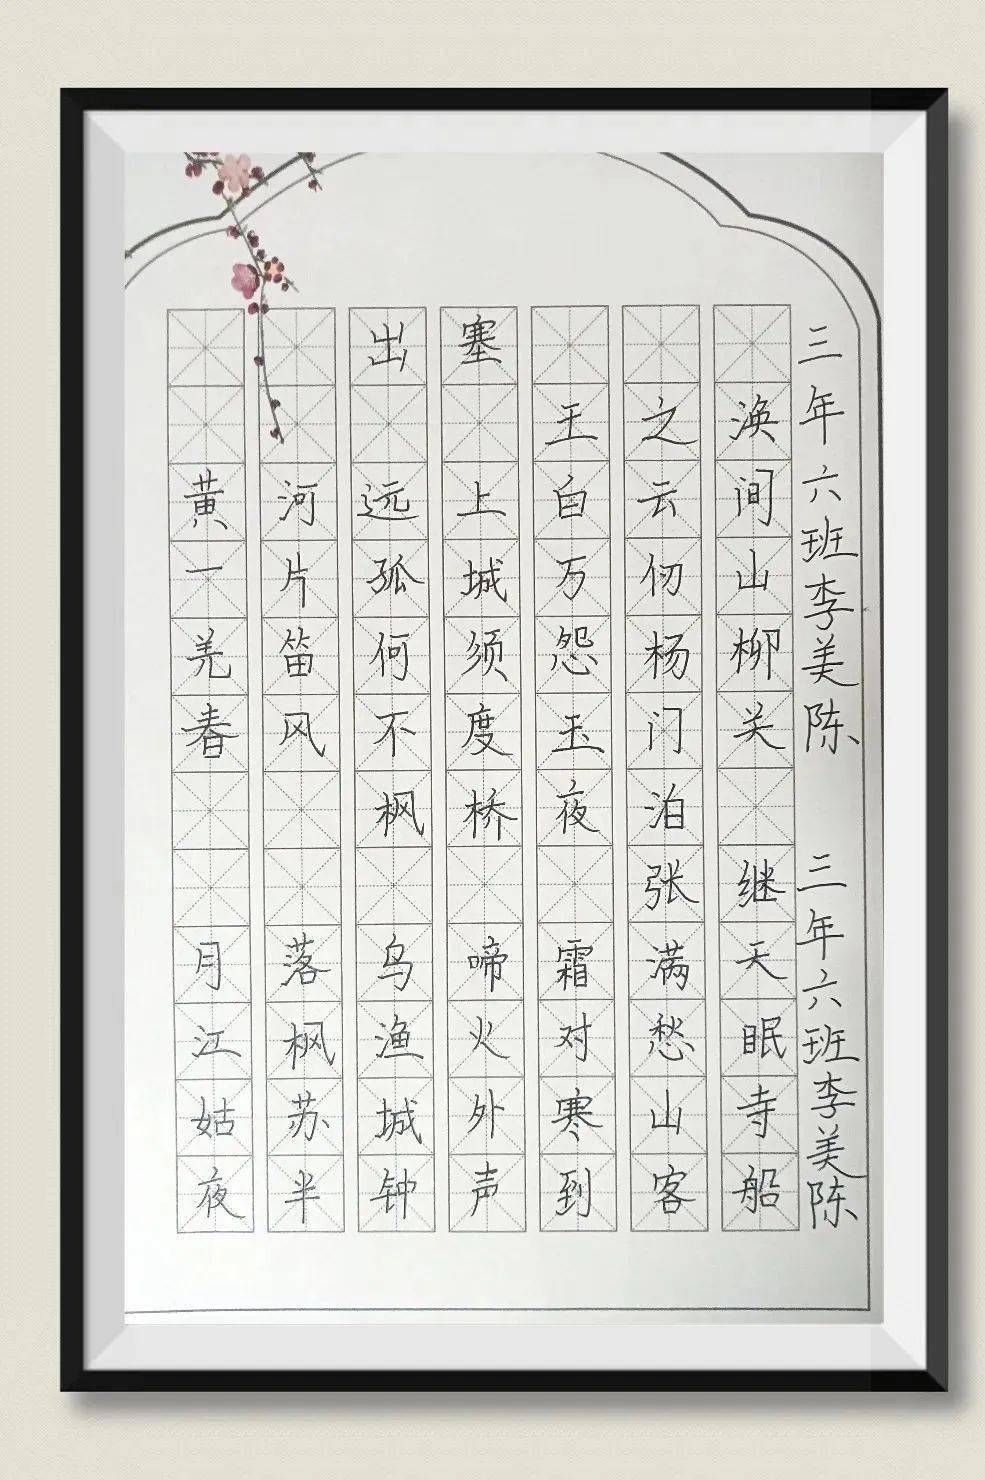 出塞
王之涣
黄河远上白云间
一片孤城万仞山
羌笛何须怨杨柳
春风不度玉门关
枫桥夜泊
张继
月落乌啼霜满天
江枫渔火对愁眠
姑苏城外寒山寺
夜半钟声到客船
三年六班李美陈
三年六班李美陈